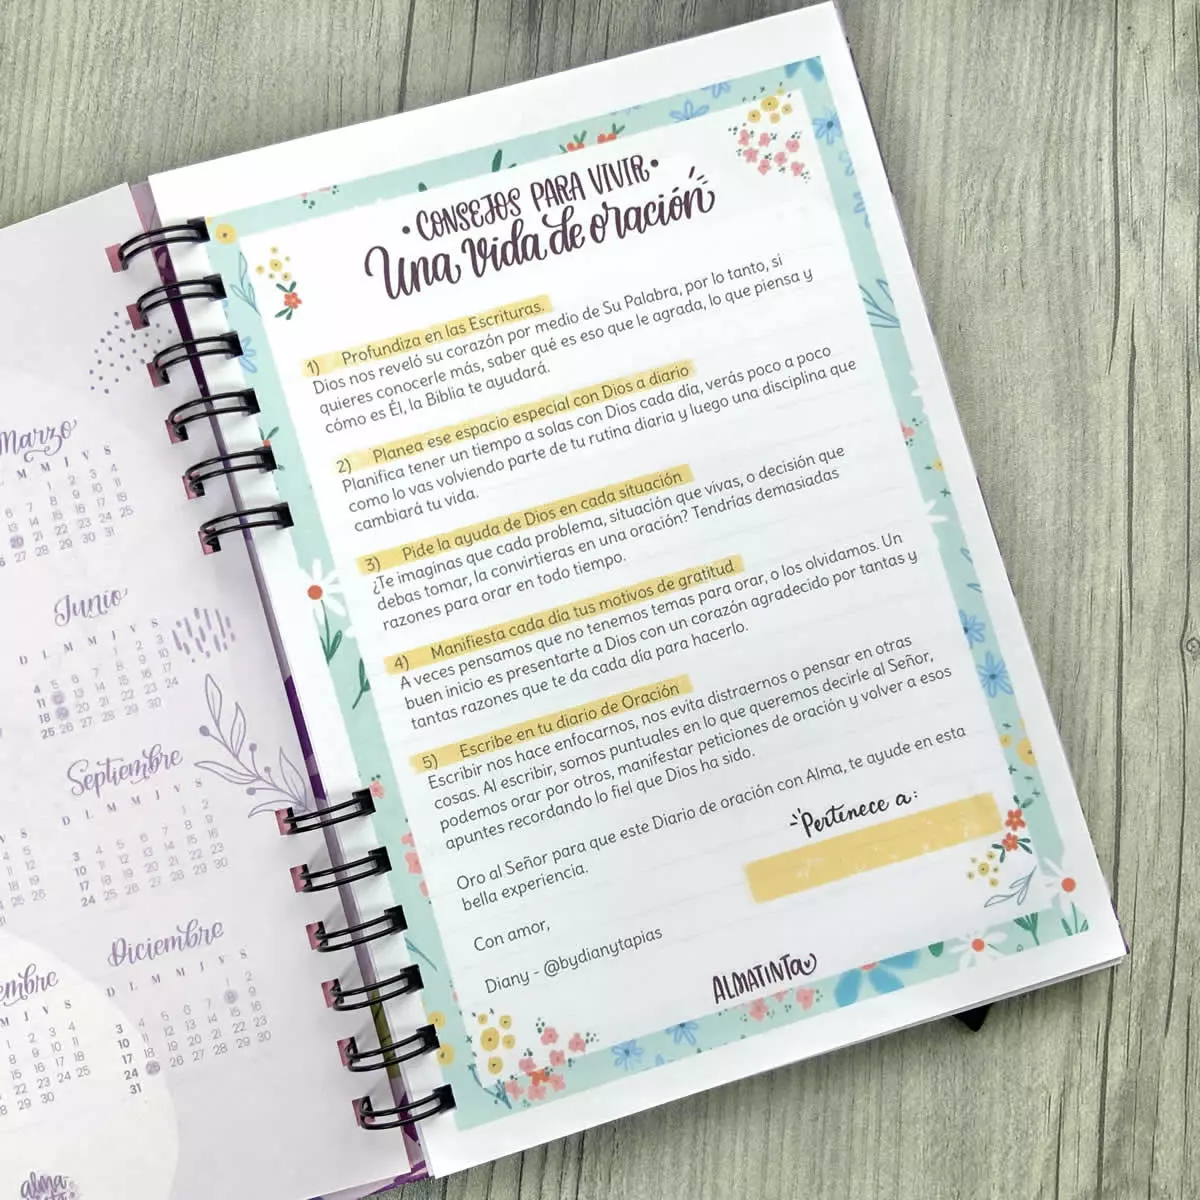 Marzo
L M M J V S
1 2 3 4
6 7 8 9 10 11
13 14 15 16 17 18
20 21 22 23 24 25
27 28 29 30 31
Junio
D L M M J V S
1 2 3
4 5 6 7 8 9 10
11 12 13 14 15 16 17
18 19 20 21 22 23 24
25 26 27 28 29 30
Septiembre
D L M M J V S
1 2
3 4 5 6 7 8 9
10 11 12 13 14 15 16
17 18 19 20 21 22 23
24 25 26 27 28 29 30
Diciembre
D L M M J V S
1 2
3 4 5 6 7 8 9
10 11 12 13 14 15 16
17 18 19 20 21 22 23
24 25 26 27 28 29 30
31
alma
• CONSEJOS PARA VIVIR •
Una Vida de oración
1) Profundiza en las Escrituras.
Dios nos reveló su corazón por medio de Su Palabra, por lo tanto, si
quieres conocerle más, saber qué es eso que le agrada, lo que piensa y
cómo es Él, la Biblia te ayudará.
2) Planea ese espacio especial con Dios a diario
Planifica tener un tiempo a solas con Dios cada día, verás poco a poco
como lo vas volviendo parte de tu rutina diaria y luego una disciplina que
cambiará tu vida.
3) Pide la ayuda de Dios en cada situación
¿Te imaginas que cada problema, situación que vivas, o decisión que
debas tomar, la convirtieras en una oración? Tendrías demasiadas
razones para orar en todo tiempo.
4) Manifiesta cada día tus motivos de gratitud
A veces pensamos que no tenemos temas para orar, o los olvidamos. Un
buen inicio es presentarte a Dios con un corazón agradecido por tantas y
tantas razones que te da cada día para hacerlo.
5) Escribe en tu diario de Oración
Escribir nos hace enfocarnos, nos evita distraernos o pensar en otras
cosas. Al escribir, somos puntuales en lo que queremos decirle al Señor,
podemos orar por otros, manifestar peticiones de oración y volver a esos
apuntes recordando lo fiel que Dios ha sido.
Oro al Señor para que este Diario de oración con Alma, te ayude en esta
bella experiencia.
Con amor,
Diany - @bydianytapias
Pertenece a:
ALMATINTA